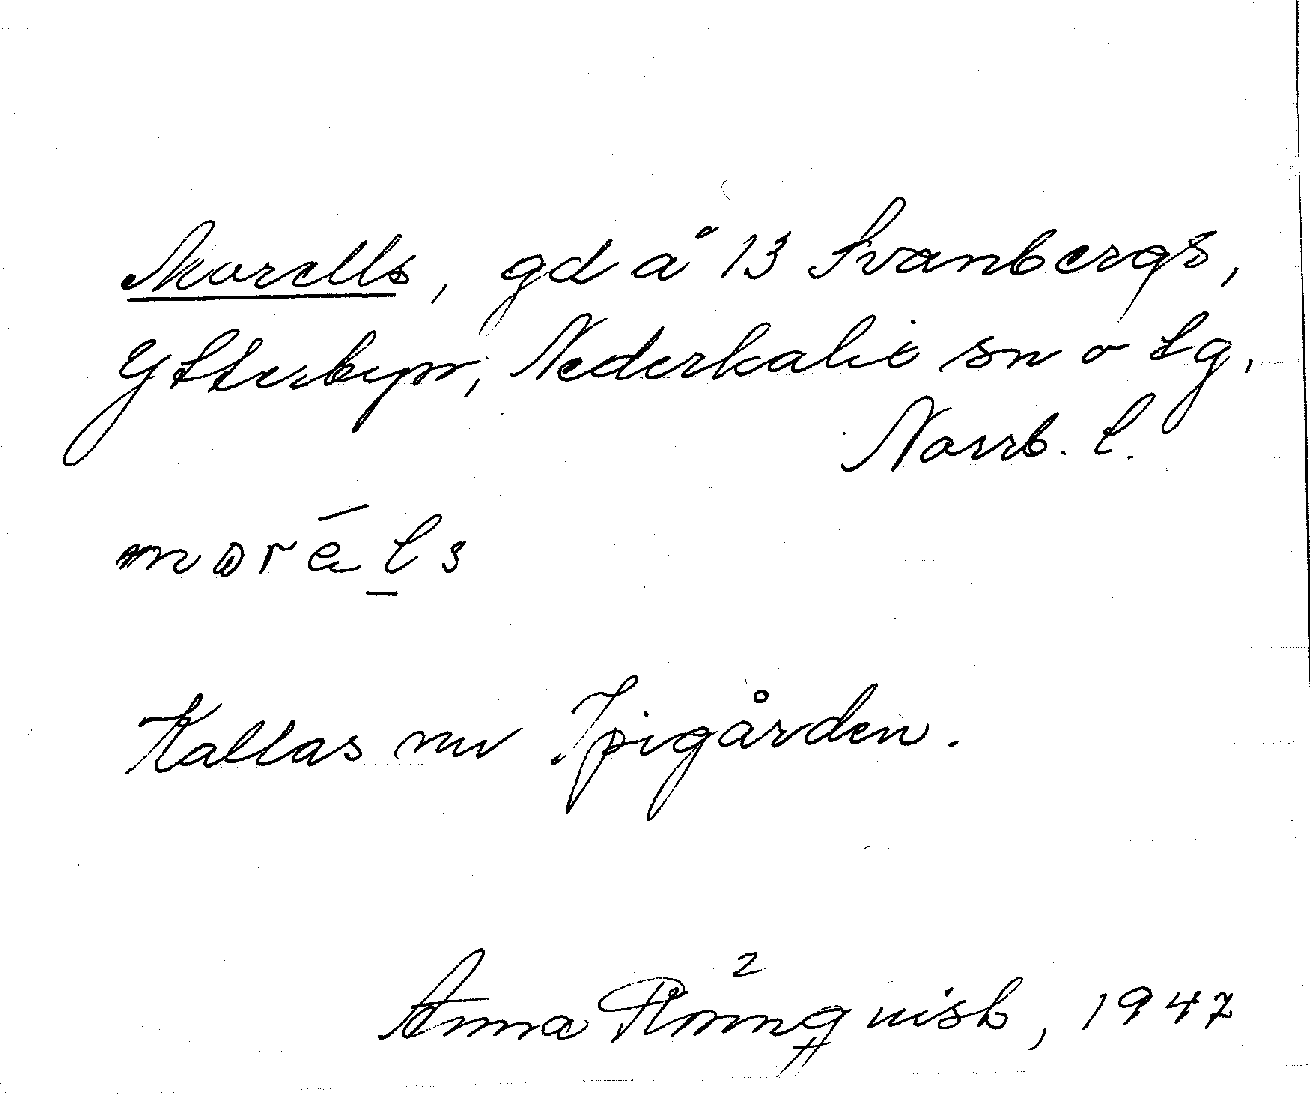 Morells, gd å 13 Svanbergs,
Ytterbyn, Nederkalix sn o tg.
Norrb. l.
moréls
Kallas nu Spigården.
Anna Rönnqvist, 1947